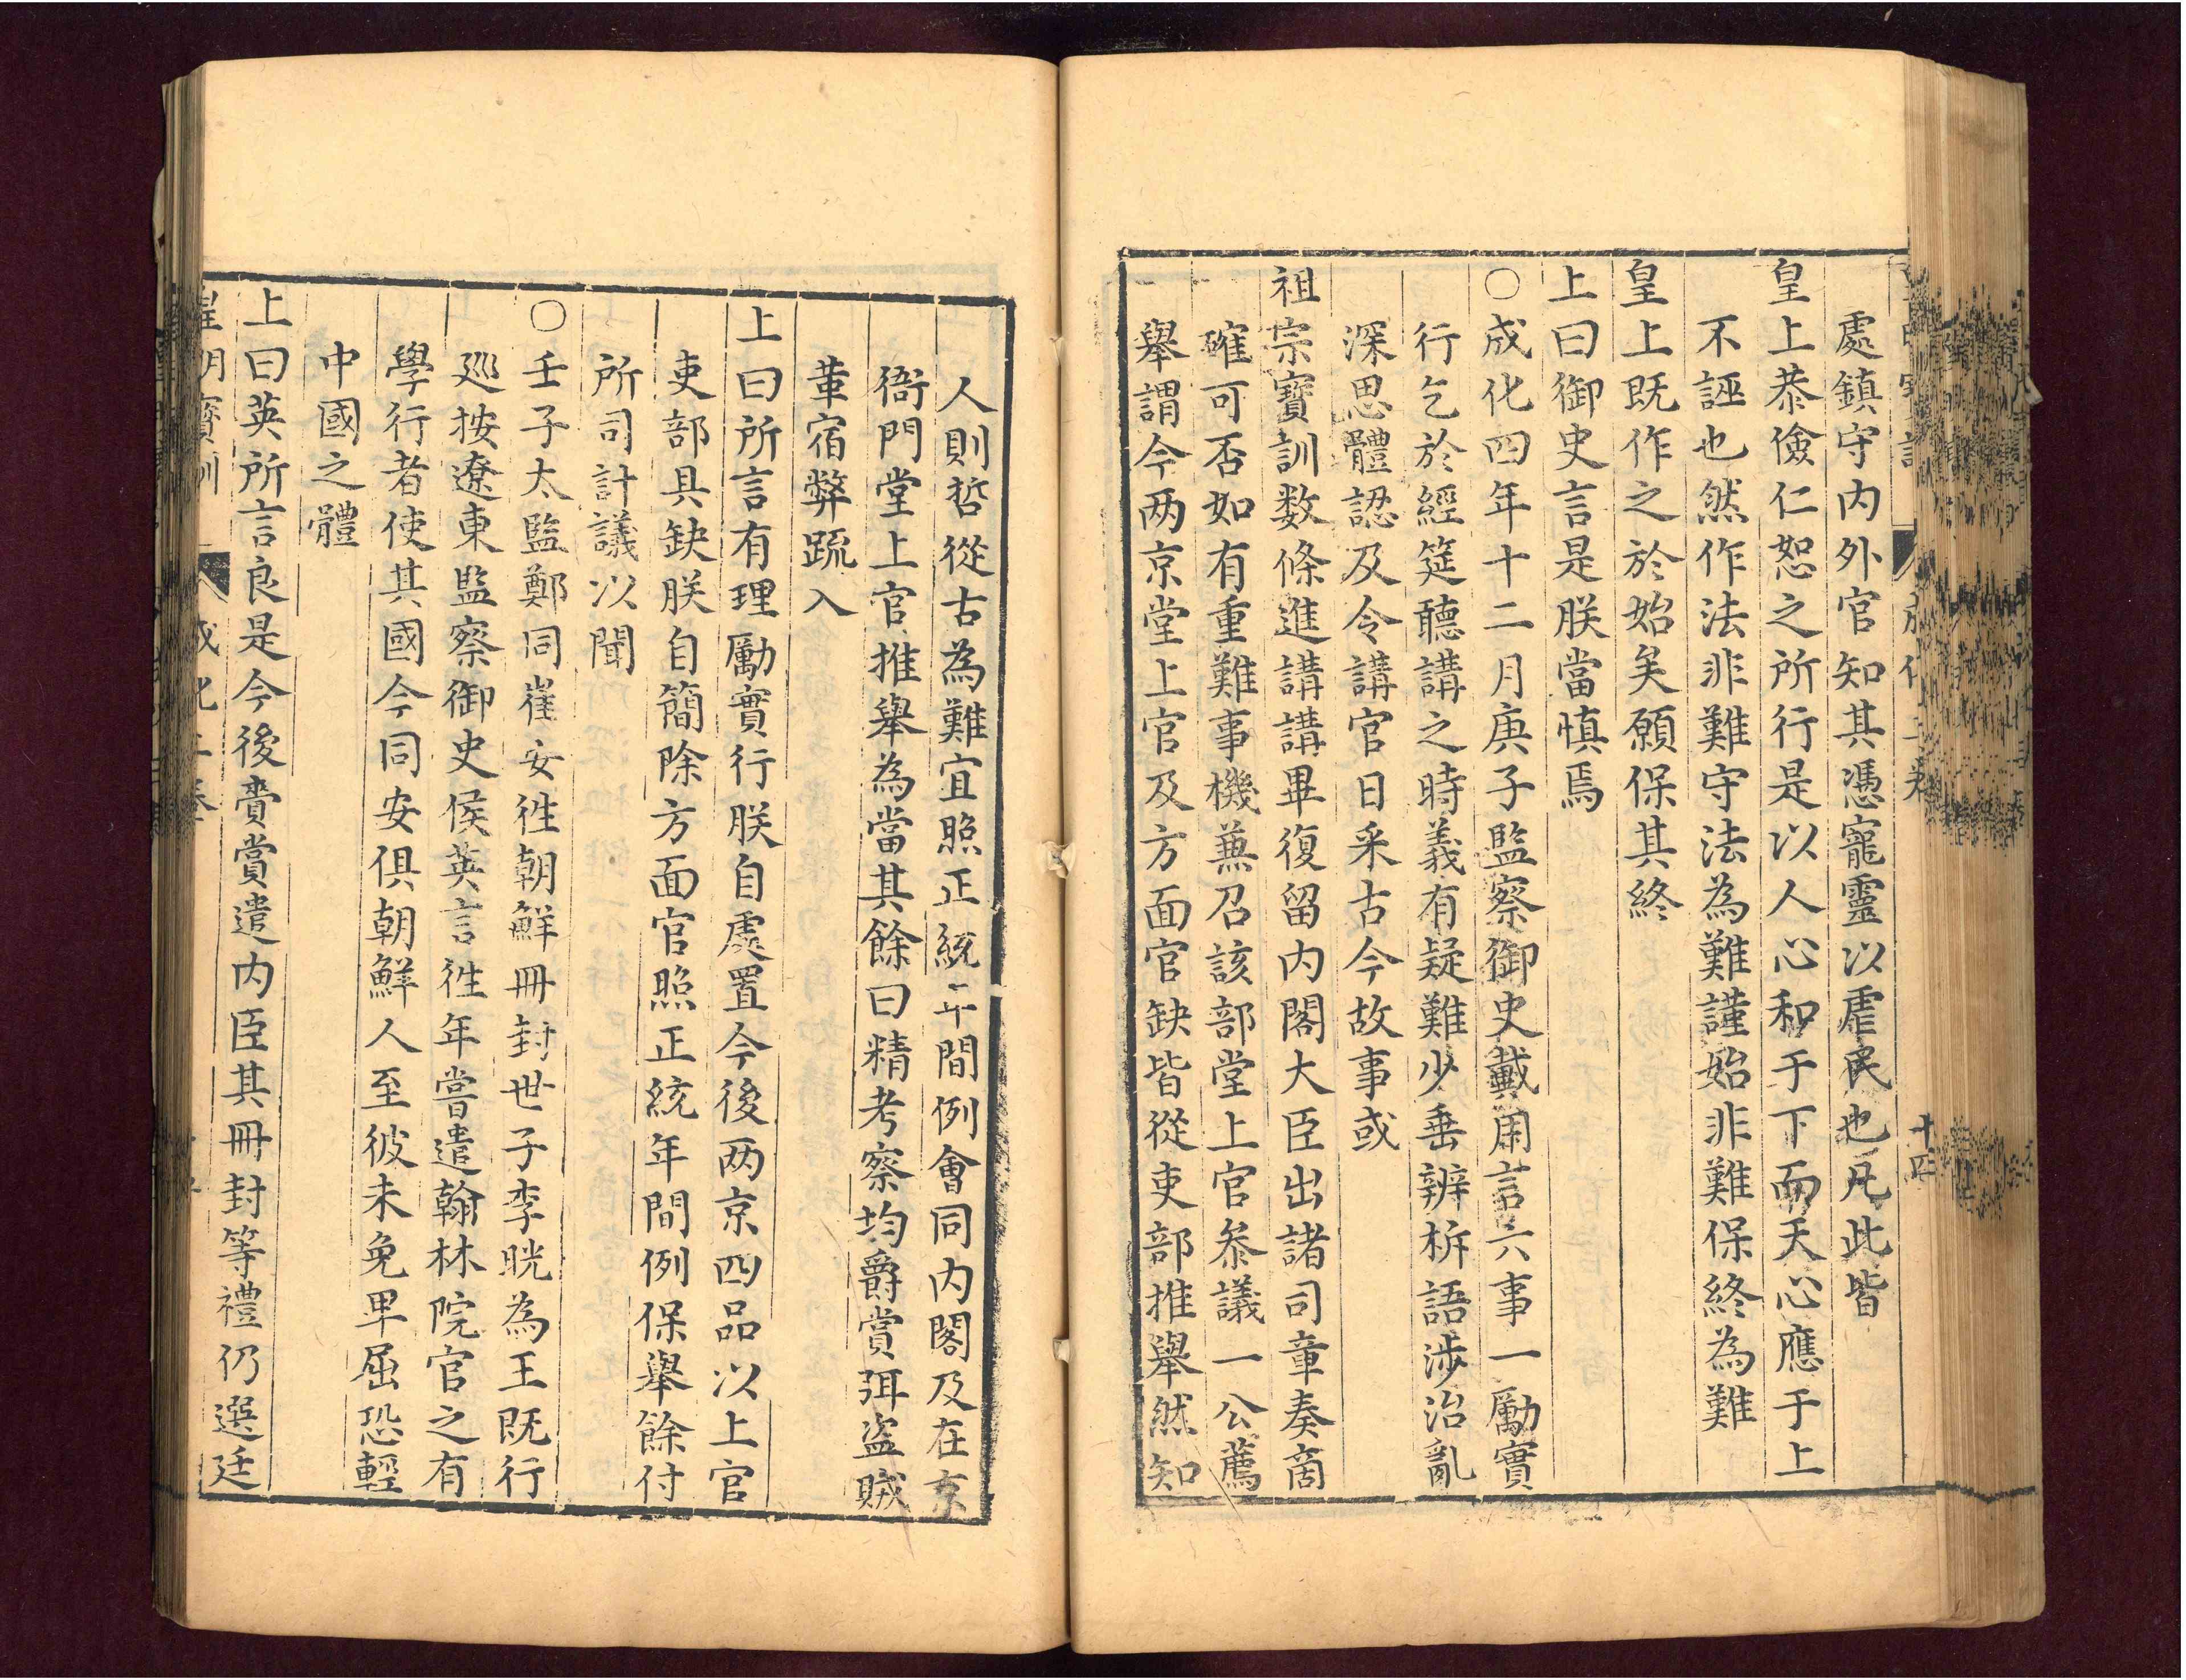 處鎮守内外官知其憑寵靈以虐民也凡此皆
皇上恭儉仁恕之所行是以人心和于下而天心應于上
不誣也然作法非難守法為難謹始非難保終為難
皇上既作之於始矣願保其終
上曰御史言是朕當慎焉
○成化四年十二月庚子監察御史戴用言六事一勵實
行乞於經筵聽講之時義有疑難少垂辨析語涉治亂
深思體認及令講官日采古今故事或
祖宗寶訓数條進講講畢復留内閣大臣出諸司章奏啇
確可否如有重難事機兼召該部堂上官叅議一公薦
舉謂今两京堂上官及方面官缺皆從吏部推舉然知
人則哲從古為難宜照正統年間例會同内閣及在京
衙門堂上官推舉為當其餘曰精考察均爵賞弭盗賊
革宿弊疏入
上曰所言有理勵實行朕自處置今後两京四品以上官
吏部具缺朕自簡除方面官照正統年間例保舉餘付
所司計議以聞
○壬子太監鄭同崔安徃朝鮮冊封世子李晄為王既行
廵按遼東監察御史侯英言徃年嘗遣翰林院官之有
學行者使其國今同安俱朝鮮人至彼未免卑屈恐輕
中國之體
上曰英所言良是今後賫賞遣内臣其冊封等禮仍選廷
皇明寶訓 成化二卷